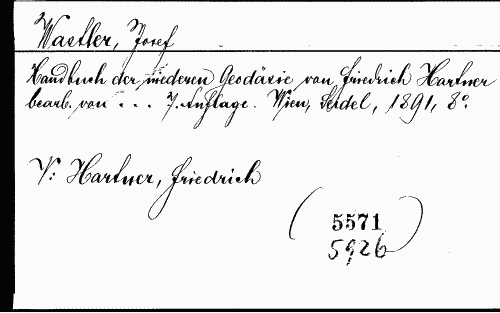 Wastler, Josef
Handbuch der niederen Geodäsie von Friedrich Hartner
bearb. von . . . 7. Auflage. Wien, Seidel, 1891, 8°.
V: Hartner, Friedrich
(5571
5926)